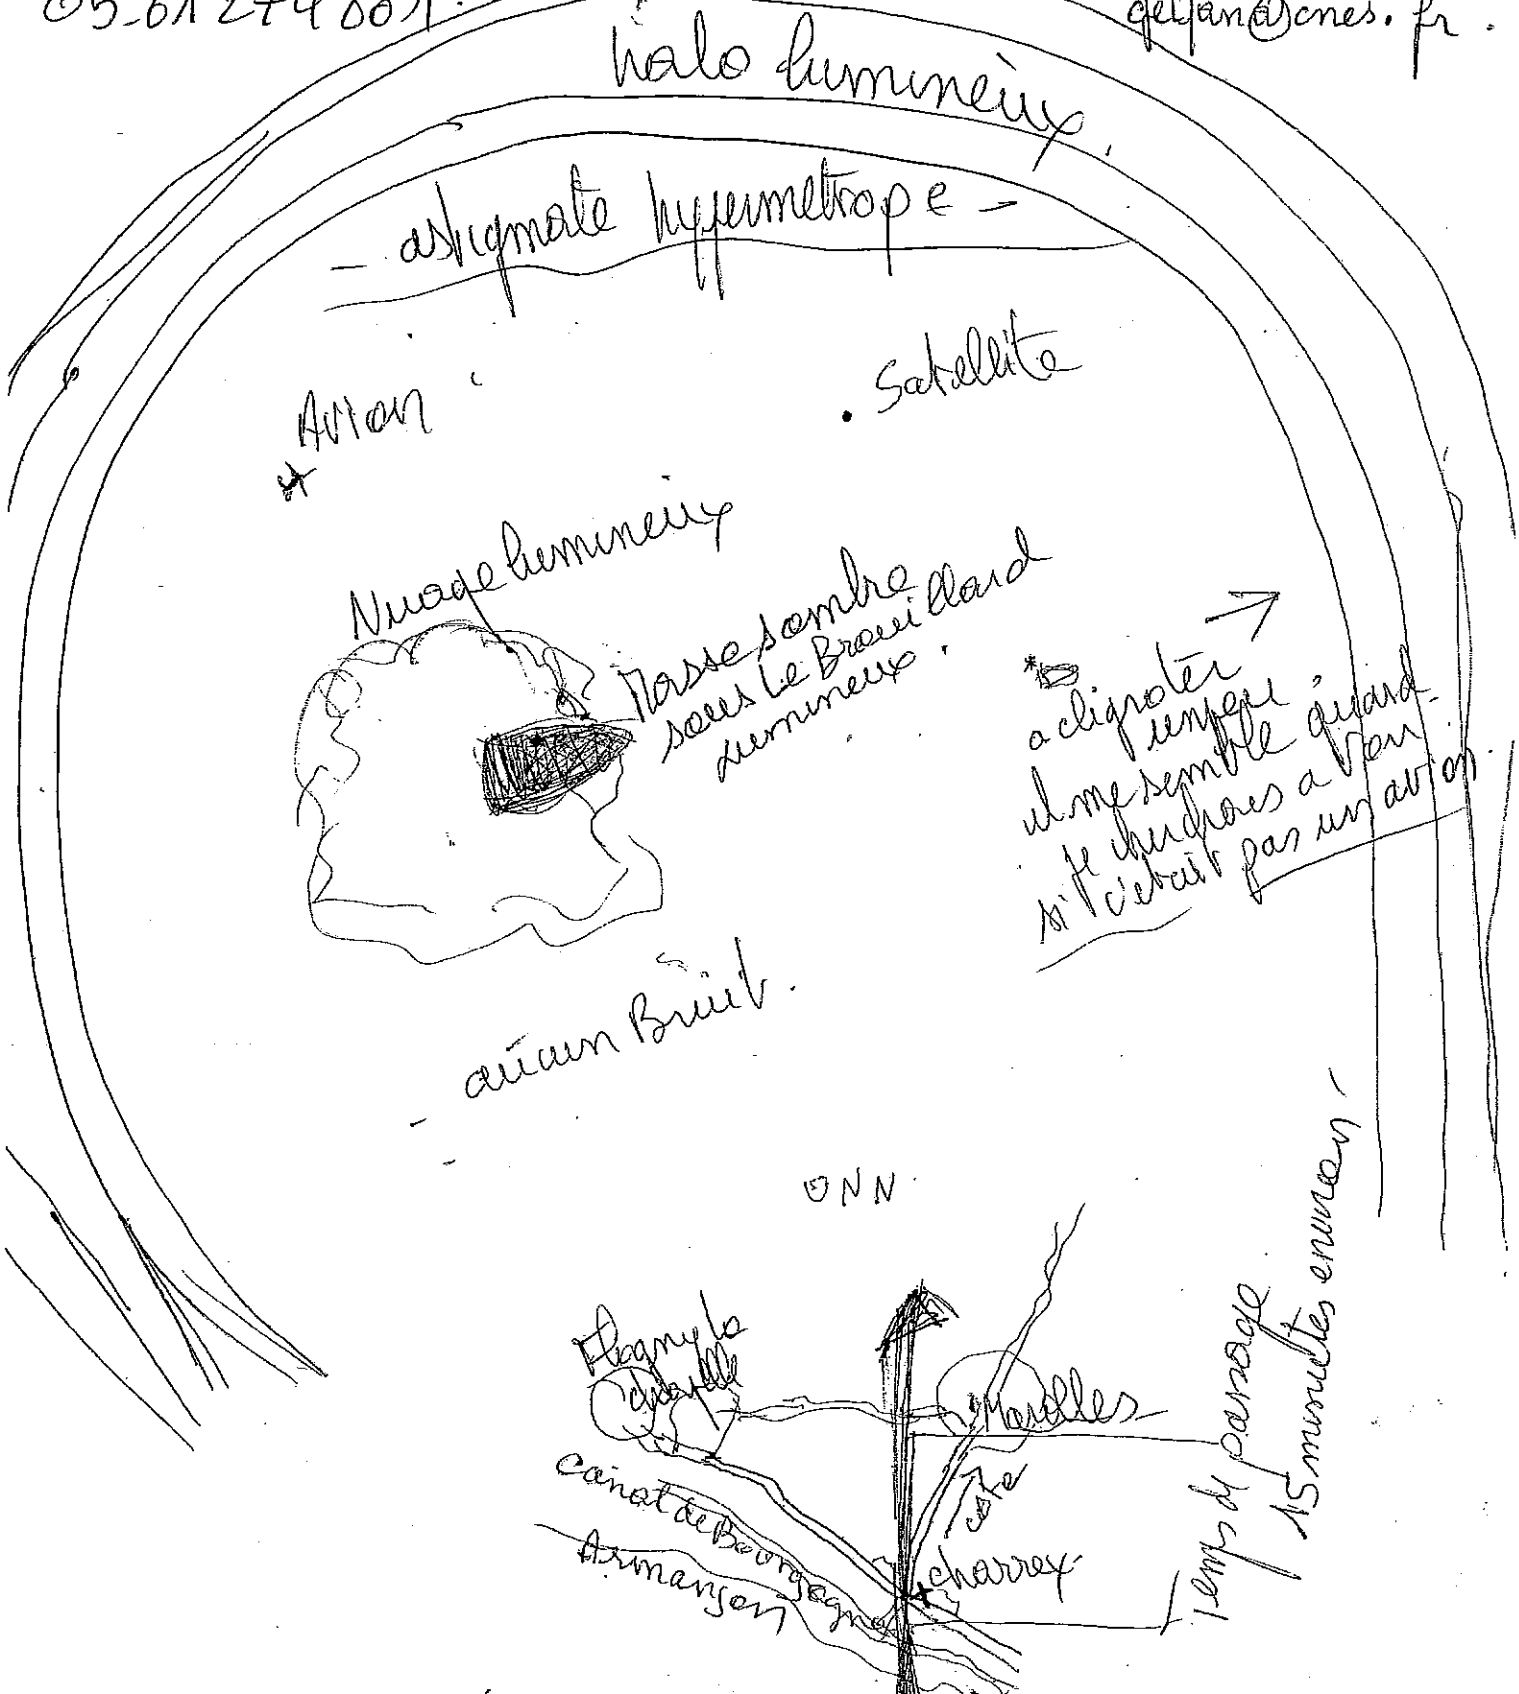 geipan@cnes.fr.
halo lumineux
- astigmate hypermétrope -
Avion
Satellite
Nuage lumineux
Masse sombre
sous Le Brouillard
Lumineux.
a clignoter
un peu
il me semble quand
je
si c'était pas un avion
- aucun Bruit.
ONN
Flogny la
chapelle
Marolles
côte
canal de Bourgogne
Armançon
charrey
Temps de passage
15 minutes environ -